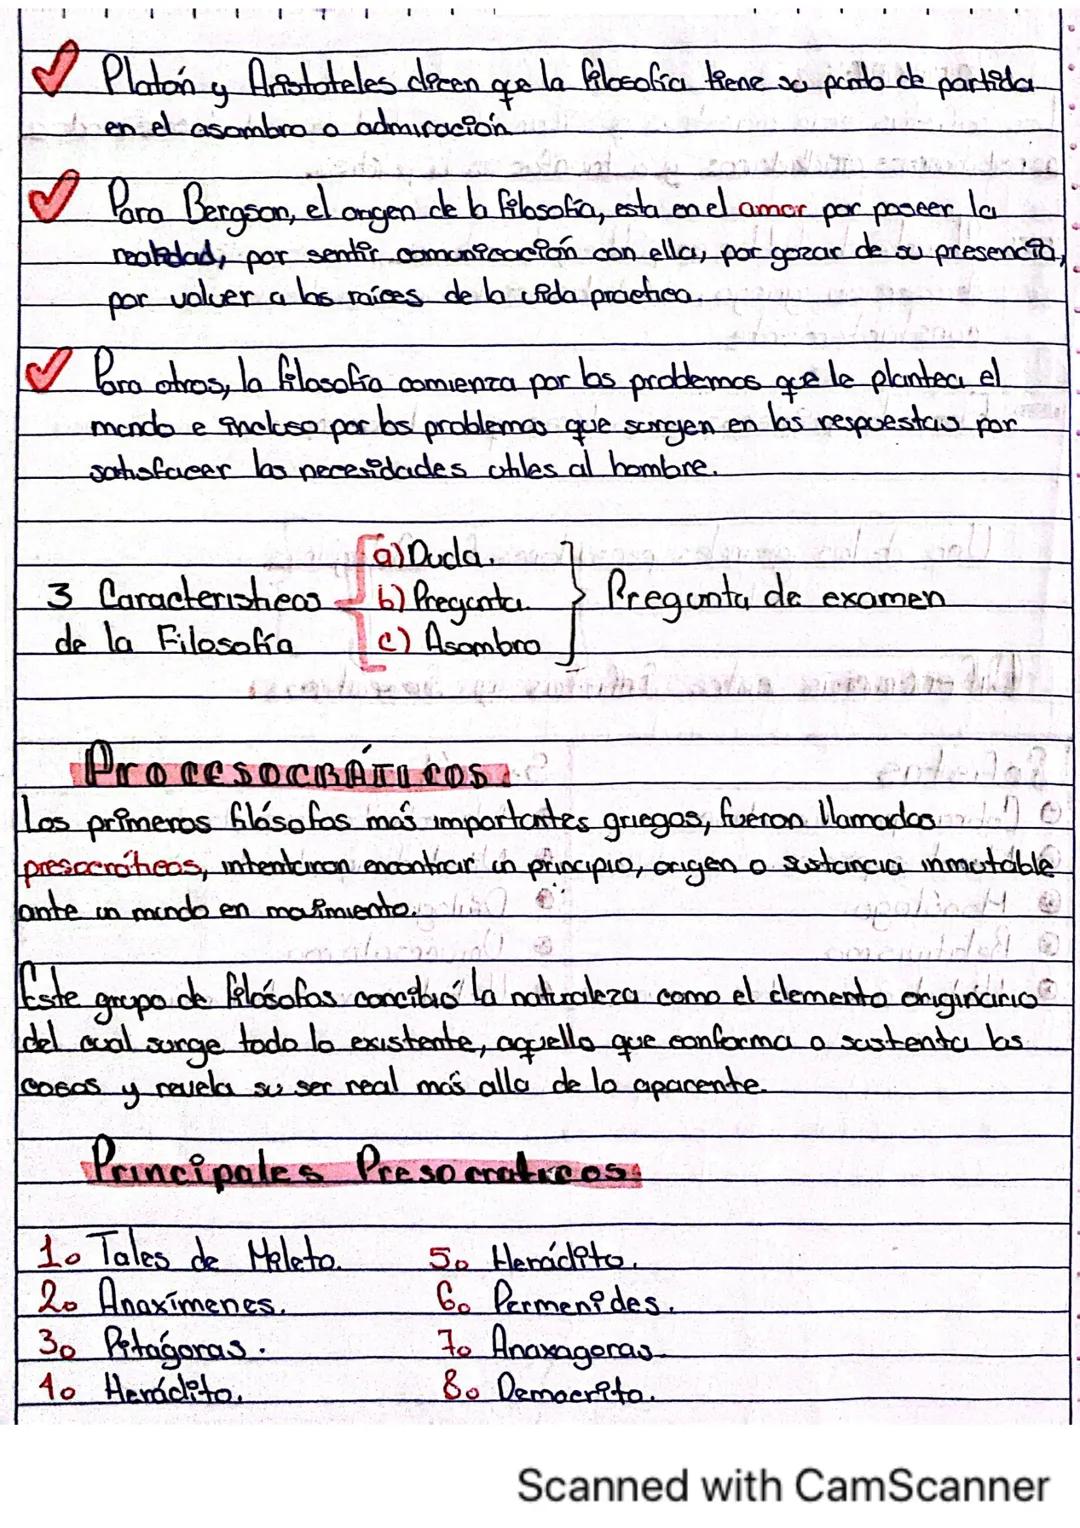 Platón y Aristoteles dicen que la filosofía tiene su punto de partida
en el asombro o admiración
Para Bergson, el origen de la filosofía, esta en el amor por poseer la
realidad, por sentir comunicación con ella, por gozar de su presencia,
por volver a las raíces de la vida practica.
Para otros, la filosofía comienza por los problemas que le plantea el
mundo e incluso por los problemas que surgen en las respuestas por
satisfacer las necesidades utiles al hombre.
a) Duda.
3 Caracteristicas b) Pregunta. Pregunta de examen
de la Filosofía c) Asombro
Procesocráticos.
Los primeros filósofos más importantes griegos, fueron llamados
presocráticos, intentaron encontrar un principio, origen o sustancia inmutable
ante un mundo en movimiento.
Este grupo de filósofos concibió la naturaleza como el elemento originario
del cual surge todo lo existente, aquello que conforma o sustenta las
cosas y revela su ser real más alla de lo aparente.
Principales Presocraticos:
1. Tales de Mileto. 5. Heráclito.
2. Anaxímenes. 6. Permenides.
3. Pitágoras. 7. Anaxagoras.
4. Heráclito. 8. Democrito.
Scanned with CamScanner